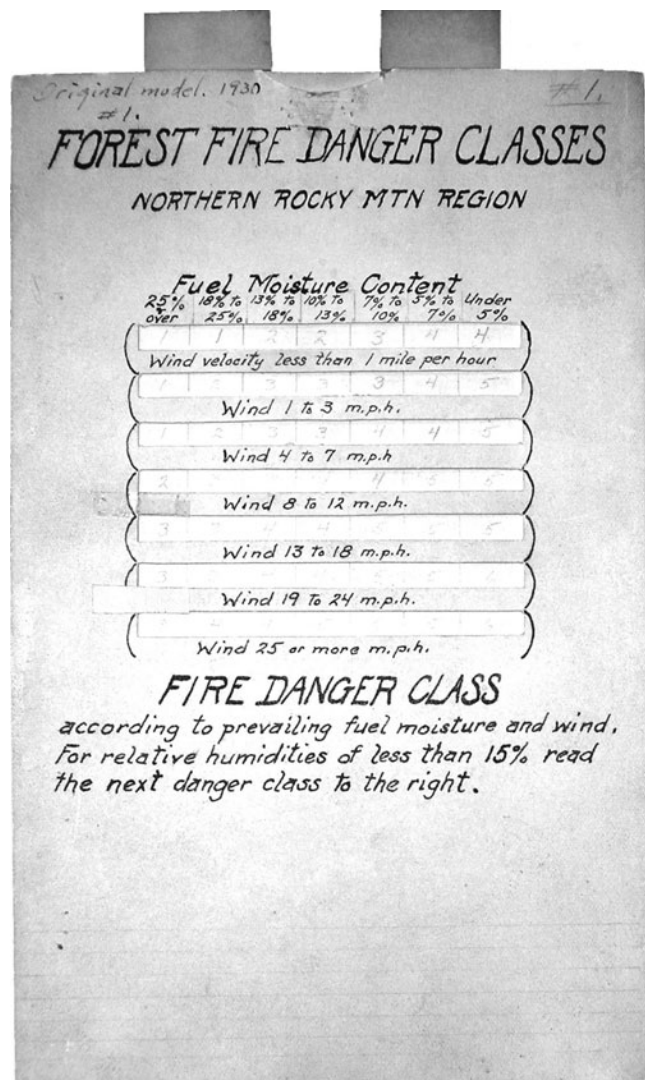 Original model. 1930
#1.
#1.
FOREST FIRE DANGER CLASSES
NORTHERN ROCKY MTN REGION
Fuel Moisture Content
25% & over 18% to 25% 13% to 18% 10% to 13% 7% to 10% 5% to 7% Under 5%
1 1 2 2 3 4 4
Wind velocity less than 1 mile per hour
1 2 3 3 3 4 5
Wind 1 to 3 m.p.h.
1 2 3 3 4 4 5
Wind 4 to 7 m.p.h
2 4 5 5
Wind 8 to 12 m.p.h.
3 4 4 5 5
Wind 13 to 18 m.p.h.
3
Wind 19 to 24 m.p.h.
Wind 25 or more m.p.h.
FIRE DANGER CLASS
according to prevailing fuel moisture and wind.
For relative humidities of less than 15% read
the next danger class to the right.